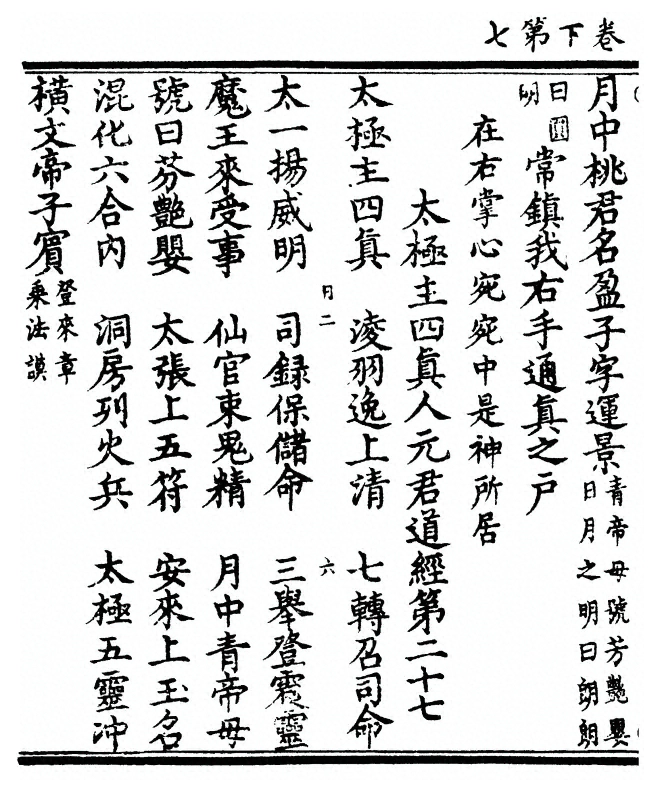 卷下第七
月中桃君名盈子字運景
青帝母號芳艷嬰
日月之明曰朗朗
曰圓
明
常鎮我右手通眞之戸
在右掌心宛宛中是神所居
太極主四眞人元君道經第二十七
太極主四眞 淩羽逸上清 七轉召司命
月二 六
太一揚威明 司録保儲命 三舉登霞靈
魔王來受事 仙官束鬼精 月中青帝母
號曰芬艶嬰 太張上五符 安來上玉名
混化六合内 洞房列火兵 太極五靈沖
橫文帝子賓
登來章
乗法謨